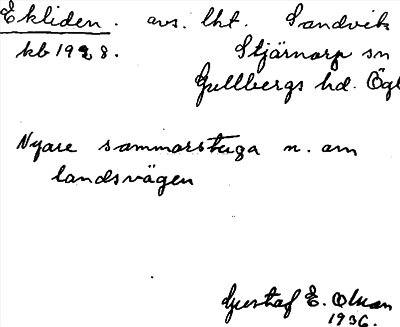 Ekliden. avs. lht. Sandvik
kb 1928. Stjärnorp sn
Gullbergs hd. Ögl
Nyare sommarstuga n. om
landsvägen
Gustaf E. Olson
1936.